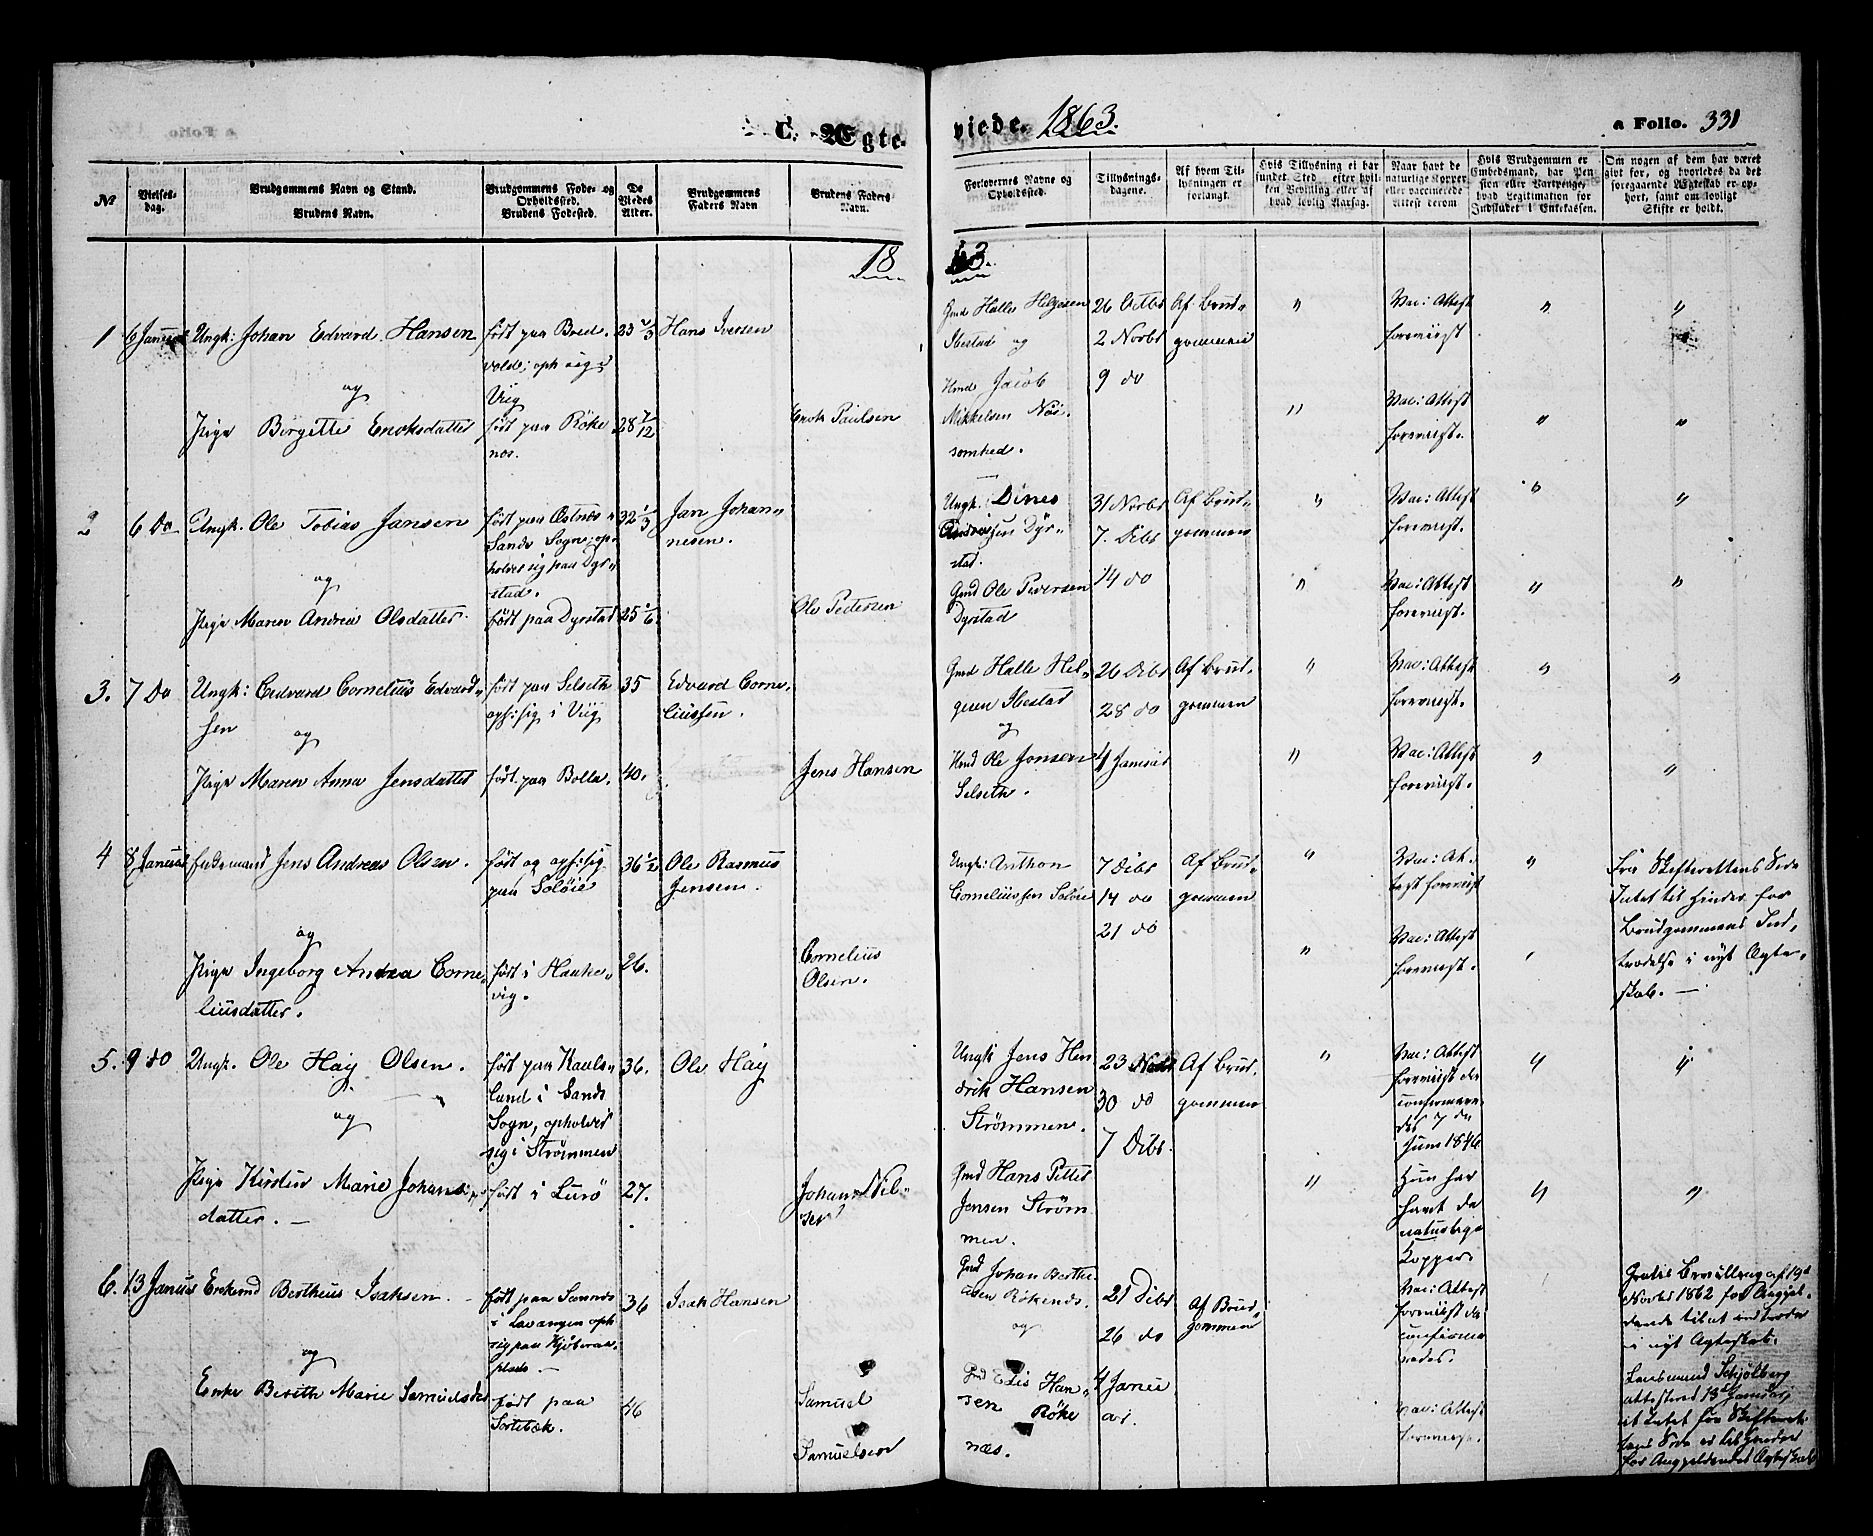 C. Ægte-
viede. 1863.
a Folio. 331
No
Vielses-
dag.
Brudgommens Navn og Stand.
Brudens Navn.
Brudgommens Føde- og
Opholdssted.
Brudens Fødested.
De
Viedes
Alder.
Brudgommens
Faders Navn
Brudens Faders
Navn.
Forlovernes Navne og
Opholdssted.
Tillysnings-
dagene.
Af hvem Til-
lysningen er
forlangt.
Hvis Tillysning ei har
fundet Sted, efter hvil-
ken Bevilling eller af
hvad lovlig Aarsag.
Naar havt de
naturlige Kopper
eller vaccinerede
Attest derom
Hvis Brudgommen er
Embedsmand, har Pen-
sion eller Vartpenge,
hvad Legitimation for
Indskudet i Enkekassen.
Om nogen af dem har været
givt før, og hvorledes da det
foregaaende Ægteskab er op-
hørt, samt om lovligt
Skifte er holdt.
18
63.
1
6 Januar
Ungk: Johan Edvard Hansen
og
Pige Birgitte Enoksdatter
født paa Bred-
volds; oph sig i
Viig
født paa Røke
nes.
23 2/3
28 7/12
Hans Iversen
Enok Paulsen
Gmd Halle Helgesen
Ibestad og
Hmd Jacob
Mikkelsen Nøi-
somhed.
26 Octbr
2 Novbr
9 do
Af Brud-
gommen
"
"
Vac: Attest
foreviist
Vac: Attest
foreviist.
"
"
"
"
2
6 Do
Ungk. Ole Tobias Jansen
og
Pige Maren Andrea Olsdatter.
født paa Østnes
Sands Sogn; op-
holder sig paa Dyr-
stad.
født paa Dyrstad
32 1/3
25 1/6
Jan Johan-
nesen.
Ole Pedersen
Ungk: Dines
Dyr-
stad.
Gmd Ole Pedersen
Dyrstad
31 Novbr
7. Dcbr
14 do
Af Brud-
gommen
"
"
Vac: Attest
foreviist.
Vac: Attest
foreviist.
"
"
"
"
3.
7 Do
Ungk: Edvard Cornelius Edvard-
sen
og
Pige Maren Anna Jensdatter
født paa Selseth
oph: sig i Viig
født paa Bolla.
35
40.
Edvard Corne-
liussen.
Jens Hansen
Gmd Halle Hel-
gesen Ibestad
og
Hmd Ole Jonsen
Selseth.
26 Dcbr
28 do
4 Januar
Af Brud-
gommen
"
"
Vac: Attest
foreviist.
Vac: Attest
foreviist.
"
"
"
"
4
8 Januar
Enkemand Jens Andreas Olsen.
og
Pige Ingeborg Andrea Corne-
liusdatter.
født og oph: sig
paa Soløie
født i Hauke-
vig.
36 1/2
26.
Ole Rasmus
Jensen.
Cornelius
Olsen.
Ungk: Anthon
Corneliussen Soløie
7 Dcbr
14 do
21 do
Af Brud-
gommen
"
"
Vac: At-
test foreviist
Vac: Attest
foreviist.
"
"
Fra Skifterettens Side
Intet til Hinder for
Brudgommens Ind-
trædelse i nyt Ægte-
skab. —
5.
9 do
Ungk. Ole Haij Olsen.
og
Pige Kirstin Marie Johans-
datter. —
født paa Kauls-
lund i Sands
Sogn, opholder
sig i Strømmen
født i Lurø
36.
27.
Ole Haij
Johan Niel-
sen
Ungk Jens Hen
drik Hansen
Strømmen.
Gmd Hans Petter
Jensen Strøm
men.
23 Novbr
30 do
7 Dcbr.
Af Brud-
gommen
"
"
Vac: Attest
foreviist da
confirmere-
des 7 de
Juni 1846
Hun har
havt de
naturlige
Kopper.
"
"
"
"
6.
13 Januar
Enkemd Bertheus Isaksen. —
og
Enke Berith Marie Samuelsdr
født paa Sannds
i Lavangen oph
sig paa
plads —
født paa
Sortebæk.
36
46
Isak Hansen
Samuel
Samuelsen
Gmd Johan Berthe
usen Røkends.
og
Gmd Elis Han-
sen Røke
næs.
21 Dcbr
26 do
4 Janu
ar.
Af Brud-
gommen
Vac: Attest
foreviist da
confirme-
redes.
Vac: Attest
foreviist.
Gratis Bevilling af 19d
Novbr 1862 for Angjel-
dende til at indtræde
i nyt Ægteskab.
Lensmand Schjølberg
attesteret 13d Januar,
at Intet fra Skifteret-
tens Side er til Hinder
for Angjeldendes Ægteskab